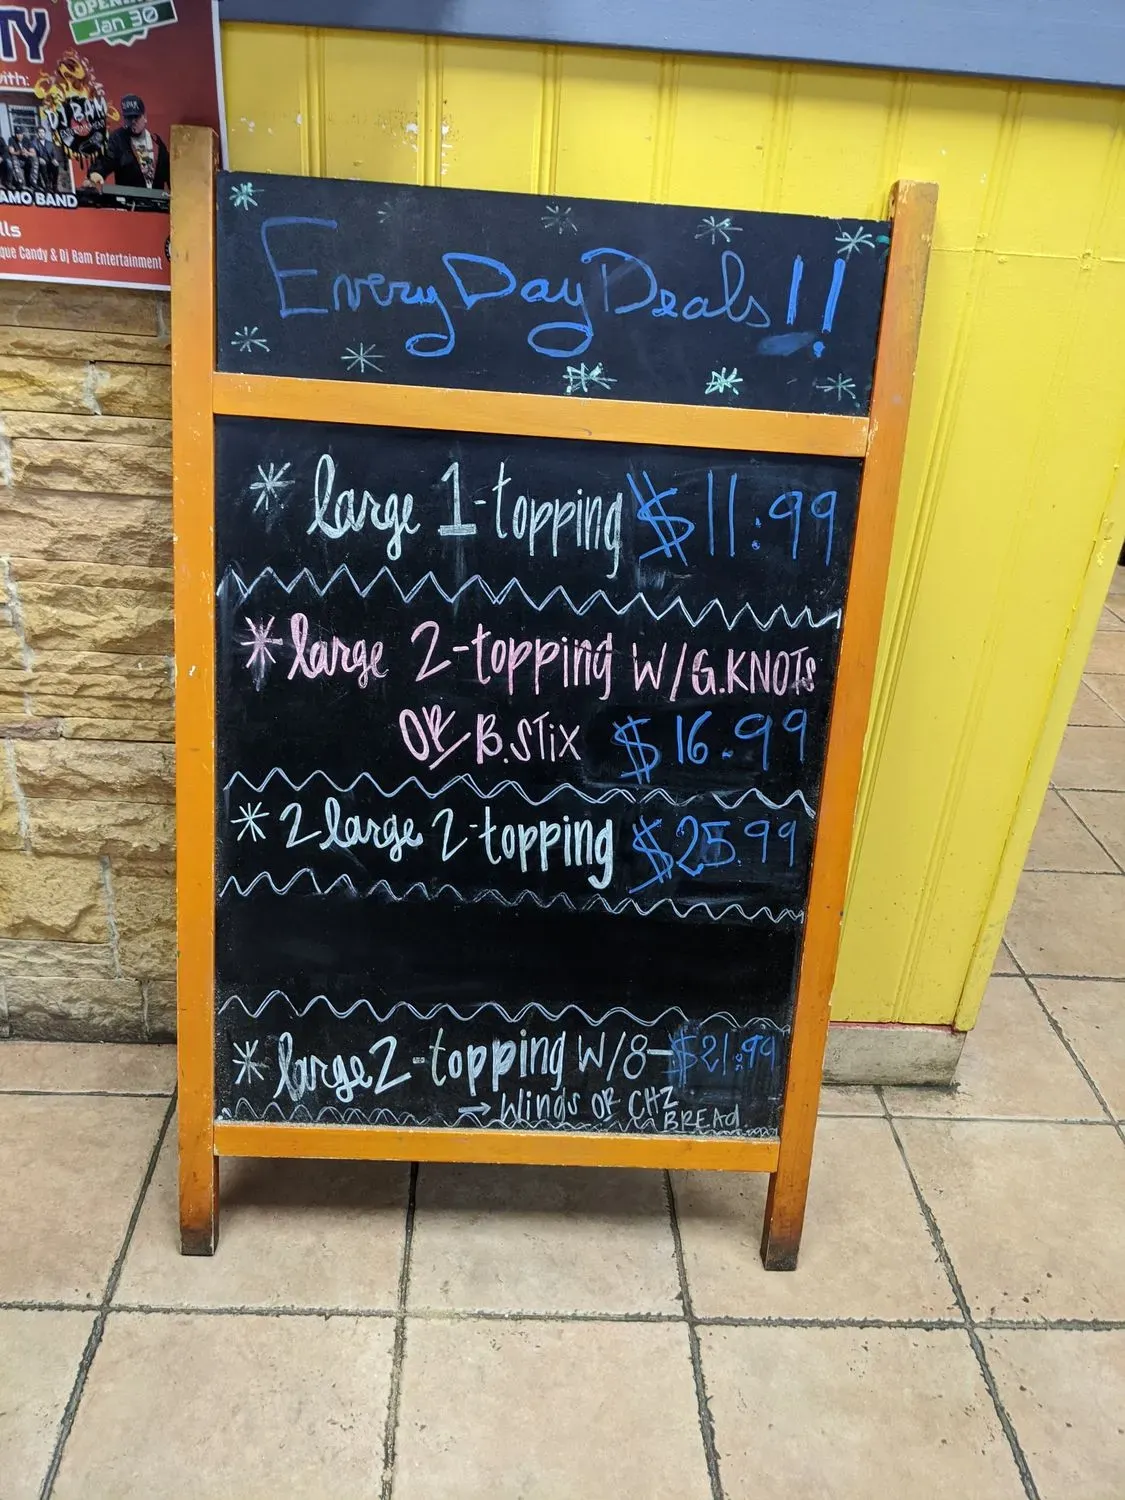 OPENING
Jan 30
TY
with:
DJ BAM
AMO BAND
lls
que Candy & Dj Bam Entertainment
Every Day Deals!!
* large 1-topping $11.99
* large 2-topping W/G.KNOTs
OR B.STiX $16.99
* 2 large 2-topping $25.99
* large 2-topping W/8- $21.99
→ Wings OR CHZ
BREAd